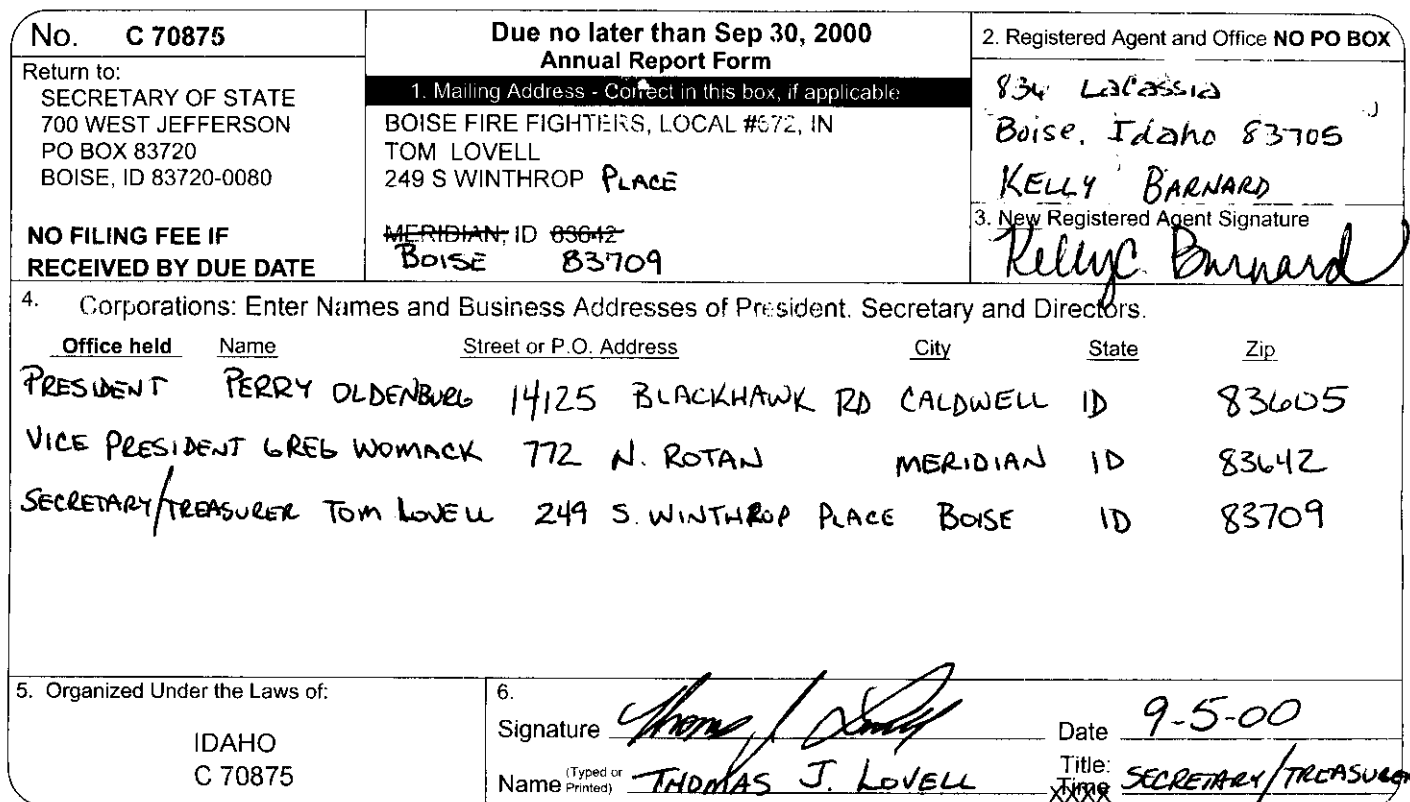 No. C 70875
Return to:
SECRETARY OF STATE
700 WEST JEFFERSON
PO BOX 83720
BOISE, ID 83720-0080
NO FILING FEE IF
RECEIVED BY DUE DATE
Due no later than Sep 30, 2000
Annual Report Form
1. Mailing Address - Correct in this box, if applicable
BOISE FIRE FIGHTERS, LOCAL #672, IN
TOM LOVELL
249 S WINTHROP PLACE
MERIDIAN, ID 83642
BOISE 83709
2. Registered Agent and Office NO PO BOX
834 LaCassia
Boise, Idaho 83705
KELLY BARNARD
3. New Registered Agent Signature
Kelly C. Barnard
4. Corporations: Enter Names and Business Addresses of President, Secretary and Directors.
Office held Name Street or P.O. Address City State Zip
PRESIDENT PERRY OLDENBURG 14125 BLACKHAWK RD CALDWELL ID 83605
VICE PRESIDENT GREG WOMACK 772 N. ROTAN MERIDIAN ID 83642
SECRETARY/TREASURER TOM LOVELL 249 S. WINTHROP PLACE BOISE ID 83709
5. Organized Under the Laws of:
IDAHO
C 70875
6.
Signature Thomas J Lovell Date 9-5-00
Name (Typed or Printed) THOMAS J. LOVELL Title: SECRETARY/TREASURER